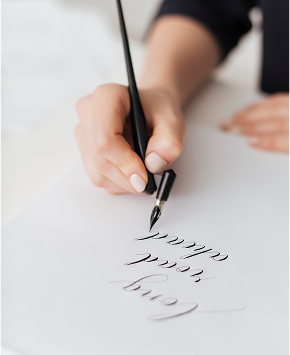 long
road
ahead